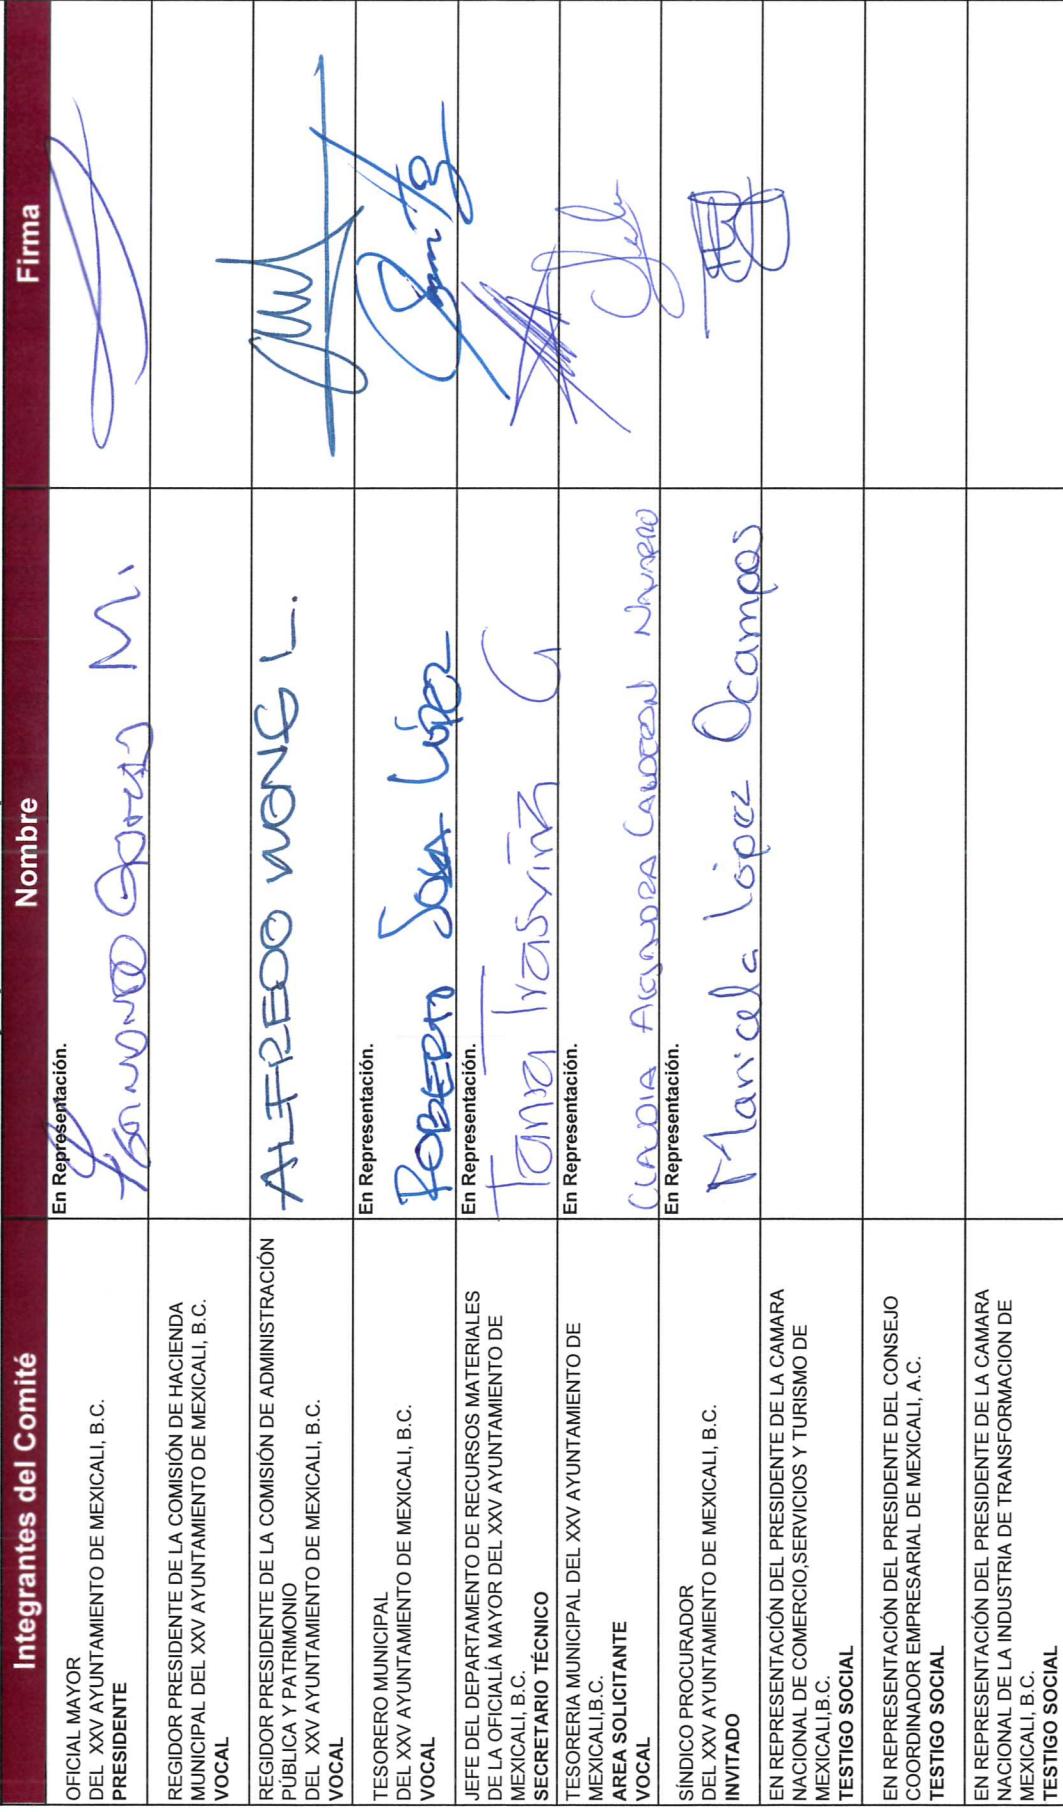 Integrantes del Comité Nombre Firma
OFICIAL MAYOR
DEL XXV AYUNTAMIENTO DE MEXICALI, B.C.
PRESIDENTE
En Representación.
M.
REGIDOR PRESIDENTE DE LA COMISIÓN DE HACIENDA
MUNICIPAL DEL XXV AYUNTAMIENTO DE MEXICALI, B.C.
VOCAL
REGIDOR PRESIDENTE DE LA COMISIÓN DE ADMINISTRACIÓN
PÚBLICA Y PATRIMONIO
DEL XXV AYUNTAMIENTO DE MEXICALI, B.C.
VOCAL
ALFREDO WONG L.
TESORERO MUNICIPAL
DEL XXV AYUNTAMIENTO DE MEXICALI, B.C.
VOCAL
En Representación.
ROBERTO SOSA LÓPEZ
JEFE DEL DEPARTAMENTO DE RECURSOS MATERIALES
DE LA OFICIALÍA MAYOR DEL XXV AYUNTAMIENTO DE
MEXICALI, B.C.
SECRETARIO TÉCNICO
En Representación.
Tania Trasviña G
TESORERIA MUNICIPAL DEL XXV AYUNTAMIENTO DE
MEXICALI,B.C.
AREA SOLICITANTE
VOCAL
En Representación.
CLAUDIA ALEJANDRA CALDERON NAVARRO
SÍNDICO PROCURADOR
DEL XXV AYUNTAMIENTO DE MEXICALI, B.C.
INVITADO
En Representación.
Maricela López Ocampos
EN REPRESENTACIÓN DEL PRESIDENTE DE LA CAMARA
NACIONAL DE COMERCIO,SERVICIOS Y TURISMO DE
MEXICALI,B.C.
TESTIGO SOCIAL
EN REPRESENTACIÓN DEL PRESIDENTE DEL CONSEJO
COORDINADOR EMPRESARIAL DE MEXICALI, A.C.
TESTIGO SOCIAL
EN REPRESENTACIÓN DEL PRESIDENTE DE LA CAMARA
NACIONAL DE LA INDUSTRIA DE TRANSFORMACION DE
MEXICALI, B.C.
TESTIGO SOCIAL